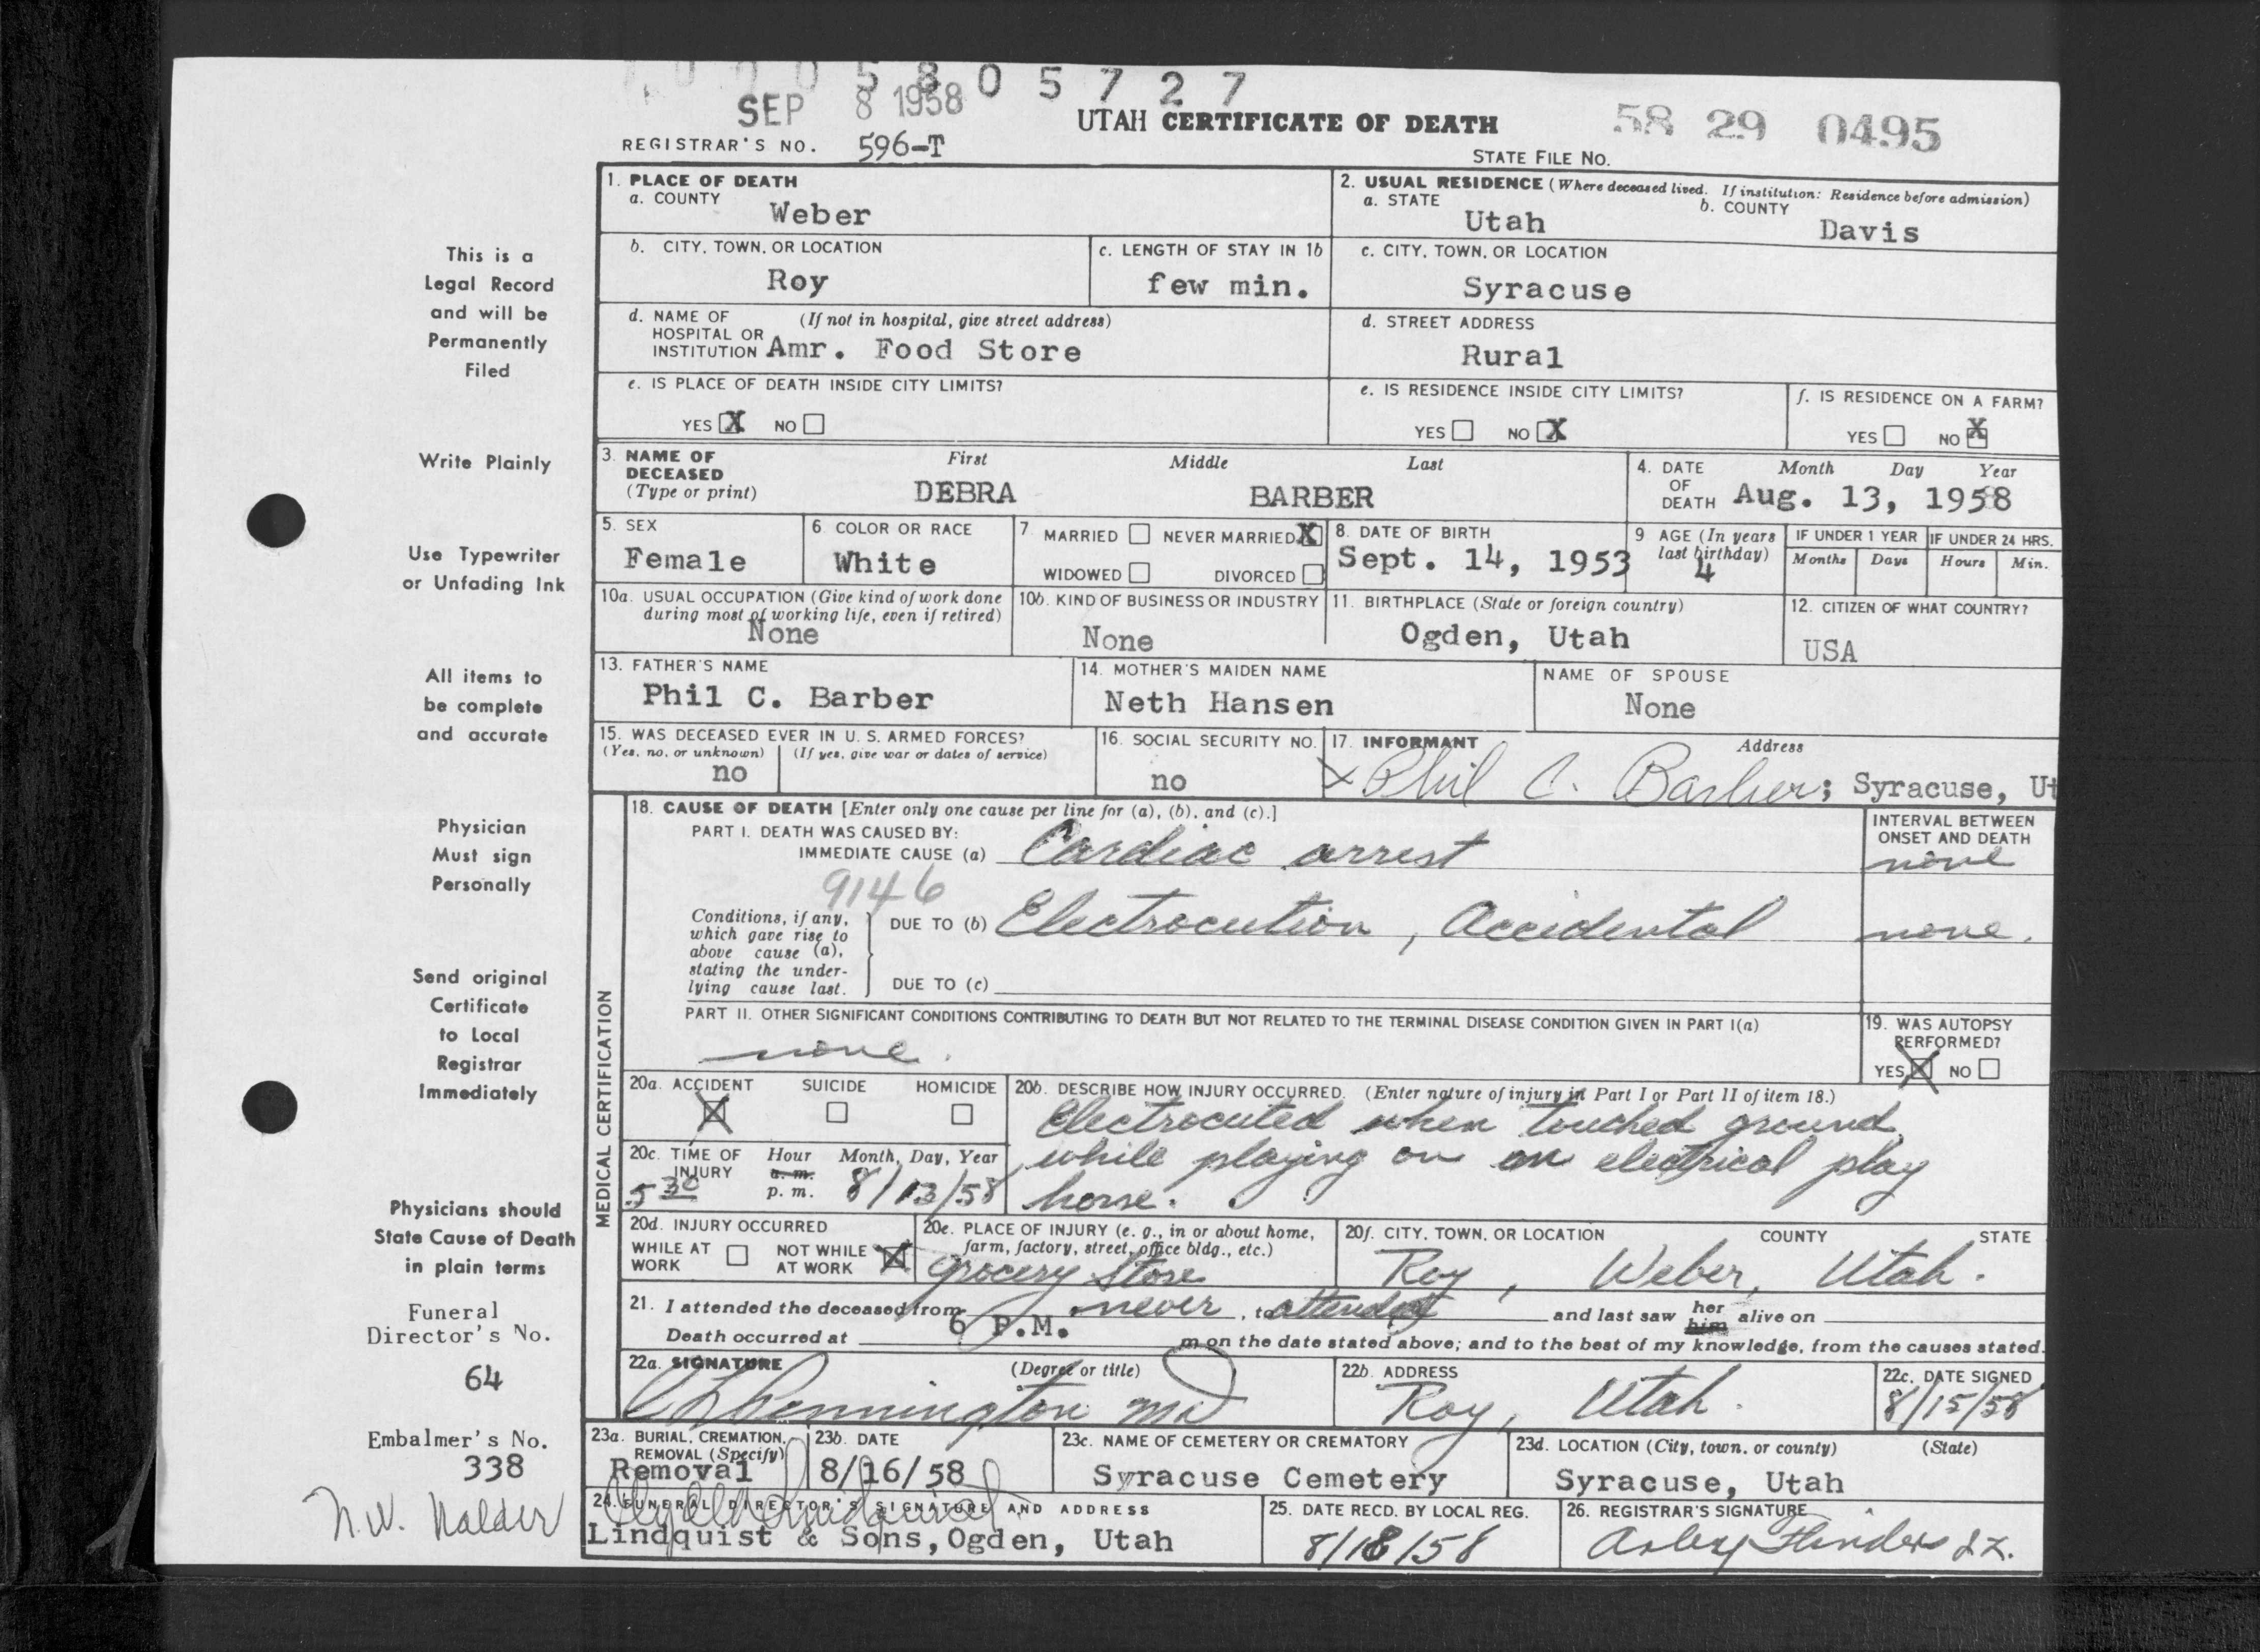 5805727
SEP 8 1958
UTAH CERTIFICATE OF DEATH
58 29 0495
REGISTRAR'S NO. 596-T
STATE FILE NO.
1. PLACE OF DEATH
a. COUNTY
Weber
2. USUAL RESIDENCE (Where deceased lived. If institution: Residence before admission)
a. STATE
Utah
b. COUNTY
Davis
b. CITY, TOWN, OR LOCATION
Roy
c. LENGTH OF STAY IN 1b
few min.
c. CITY, TOWN, OR LOCATION
Syracuse
d. NAME OF HOSPITAL OR INSTITUTION
(If not in hospital, give street address)
Amr. Food Store
d. STREET ADDRESS
Rural
e. IS PLACE OF DEATH INSIDE CITY LIMITS?
YES X NO
e. IS RESIDENCE INSIDE CITY LIMITS?
YES NO X
f. IS RESIDENCE ON A FARM?
YES NO X
3. NAME OF DECEASED
(Type or print)
First Middle Last
DEBRA BARBER
4. DATE OF DEATH
Month Day Year
Aug. 13, 1958
5. SEX
Female
6. COLOR OR RACE
White
7. MARRIED NEVER MARRIED X
WIDOWED DIVORCED
8. DATE OF BIRTH
Sept. 14, 1953
9 AGE (In years last birthday)
4
IF UNDER 1 YEAR
Months Days
IF UNDER 24 HRS.
Hours Min.
10a. USUAL OCCUPATION (Give kind of work done during most of working life, even if retired)
None
10b. KIND OF BUSINESS OR INDUSTRY
None
11. BIRTHPLACE (State or foreign country)
Ogden, Utah
12. CITIZEN OF WHAT COUNTRY?
USA
13. FATHER'S NAME
Phil C. Barber
14. MOTHER'S MAIDEN NAME
Neth Hansen
NAME OF SPOUSE
None
15. WAS DECEASED EVER IN U. S. ARMED FORCES?
(Yes, no, or unknown) (If yes, give war or dates of service)
no
16. SOCIAL SECURITY NO.
no
17. INFORMANT Address
x Phil C. Barber; Syracuse, Ut
18. CAUSE OF DEATH [Enter only one cause per line for (a), (b), and (c).]
PART I. DEATH WAS CAUSED BY:
IMMEDIATE CAUSE (a) Cardiac arrest
INTERVAL BETWEEN ONSET AND DEATH
none
9146
Conditions, if any, which gave rise to above cause (a), stating the underlying cause last.
DUE TO (b) Electrocution, Accidental
none.
DUE TO (c)
PART II. OTHER SIGNIFICANT CONDITIONS CONTRIBUTING TO DEATH BUT NOT RELATED TO THE TERMINAL DISEASE CONDITION GIVEN IN PART I(a)
none.
19. WAS AUTOPSY PERFORMED?
YES X NO
MEDICAL CERTIFICATION
20a. ACCIDENT SUICIDE HOMICIDE
X
20b. DESCRIBE HOW INJURY OCCURRED. (Enter nature of injury in Part I or Part II of item 18.)
Electrocuted when touched ground
while playing on an electrical play
horse.
20c. TIME OF INJURY
Hour Month, Day, Year
a. m.
p. m.
5 30 8/13/58
20d. INJURY OCCURRED
WHILE AT WORK NOT WHILE AT WORK X
20e. PLACE OF INJURY (e. g., in or about home, farm, factory, street, office bldg., etc.)
Grocery Store
20f. CITY, TOWN, OR LOCATION COUNTY STATE
Roy, Weber, Utah.
21. I attended the deceased from never, to attended and last saw her him alive on
Death occurred at 6 P.M. m on the date stated above; and to the best of my knowledge, from the causes stated.
22a. SIGNATURE (Degree or title)
Pennington MD
22b. ADDRESS
Roy, Utah.
22c. DATE SIGNED
8/15/58
23a. BURIAL, CREMATION, REMOVAL (Specify)
Removal
23b. DATE
8/16/58
23c. NAME OF CEMETERY OR CREMATORY
Syracuse Cemetery
23d. LOCATION (City, town, or county) (State)
Syracuse, Utah
24. FUNERAL DIRECTOR'S SIGNATURE AND ADDRESS
Lindquist & Sons, Ogden, Utah
25. DATE RECD. BY LOCAL REG.
8/18/58
26. REGISTRAR'S SIGNATURE
Flinders
This is a
Legal Record
and will be
Permanently
Filed
Write Plainly
Use Typewriter
or Unfading Ink
All items to
be complete
and accurate
Physician
Must sign
Personally
Send original
Certificate
to Local
Registrar
Immediately
Physicians should
State Cause of Death
in plain terms
Funeral
Director's No.
64
Embalmer's No.
338
N.W. Nalder